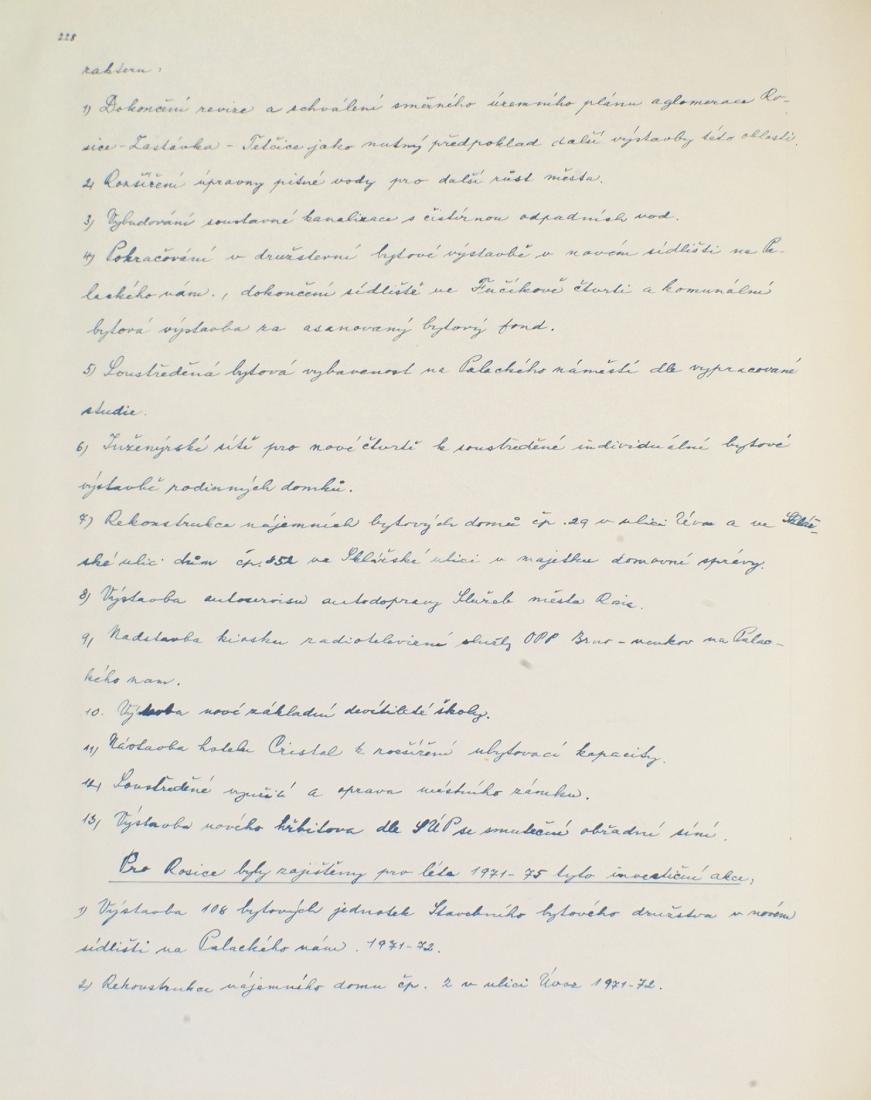 228
rakteru:
1) Dokončení revize a schválení směrného územního plánu aglomerace Ro-
sice-Zastávka-Tetčice jako nutný předpoklad další výstavby této oblasti.
2) Rozšíření úpravny pitné vody pro další růst města.
3) Vybudování soustavné kanalizace s čistírnou odpadních vod.
4) Pokračování v družstevní bytové výstavbě v novém sídlišti na Pa-
lackého nám., dokončení sídliště ve Fučíkově čtvrti a komunální
bytová výstavba za asanovaný bytový fond.
5) Soustředěná bytová vybavenost na Palackého náměstí dle vypracované
studie.
6) Inženýrské sítě pro nové čtvrtě k soustředěné individuélné bytové
výstavbě rodinných domků.
7) Rekonstrukce nájemních bytových domů čp. 29 v ulici Úvoz a ve Sklář-
ské ulic dům čp. 852 ve Sklářské ulici v majetku domovní správy.
8) Výstavba autoservisu autodopravy Služeb města Rosic.
9) Nadstavba kiosku radiotelevizní služby OPP Brno-venkov na Palac-
kého nam.
10. Výstavba nové základní devítileté školy.
11) Nástavba hotelu Cristal k rozšíření ubytovací kapacity.
12) Soustředěné využití a oprava místního zámku.
13) Výstavba nového hřbitova dle SÚP se smuteční obřadní síní.
Pro Rosice byly zajištěny pro léta 1971-75 tyto investiční akce:
1) Výstavba 108 bytových jednotek Stavebního bytového družstva v novém
sídlišti na Palackého nám. 1971-72.
2) Rekonstrukce nájemního domu čp. 2 v ulici Úvoz 1971-72.